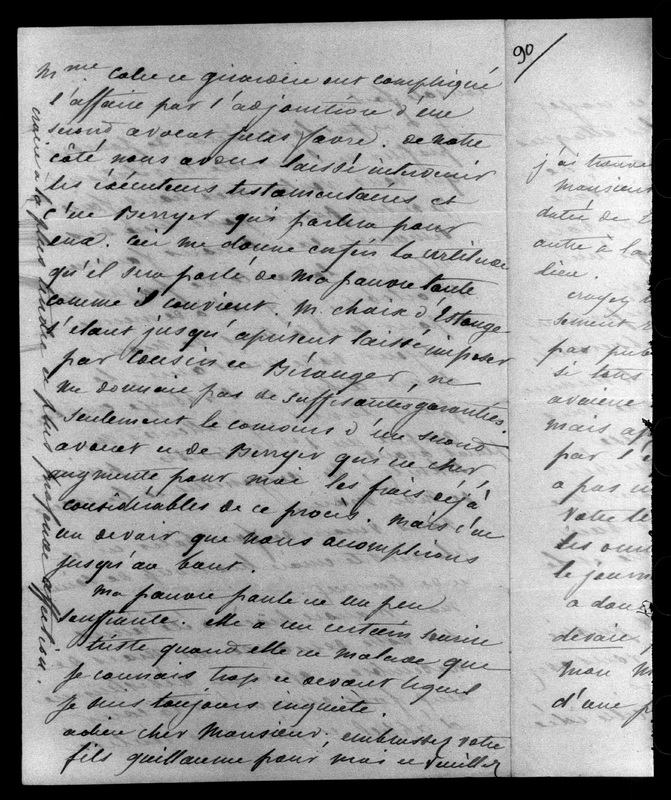 Mme Colet et Girardin ont compliqué
l'affaire par l'adjonction d'un
second avocat Jules Favre. De notre
côté nous avons laissé intervenir
les exécuteurs testamentaires et
c'est Berryer qui parlera pour
eux. Ceci me donne enfin la certitude
qu'il sera parlé de ma pauvre tante
comme il convient. M. Chaix d'Estange
s'étant jusqu'à présent laissé imposer
par Cousin et Béranger, ne
me donnait pas de suffisantes garanties.
Seulement le concours d'un second
avocat et de Berryer qui est cher
augmente pour moi les frais déjà
considérables de ce procès. Mais c'est
un devoir que nous accomplirons
jusqu'au bout.
Ma pauvre Paule est un peu
souffrante. Elle a un certain sourire
triste quand elle est malade que
je connais trop et devant lequel
je suis toujours inquiète.
Adieu cher Monsieur, embrassez votre
fils Guillaume pour moi et veuillez
croire à la plus tendre et plus profonde affection.
90/
j'ai trouvé
Monsieur
datée de
autre à la
lieu.
croyez
sement
pas pub
si tous
avaient
mais aff
par l'e
a pas
votre le
les
le journ
a dans
devait
Mon M
d'une p